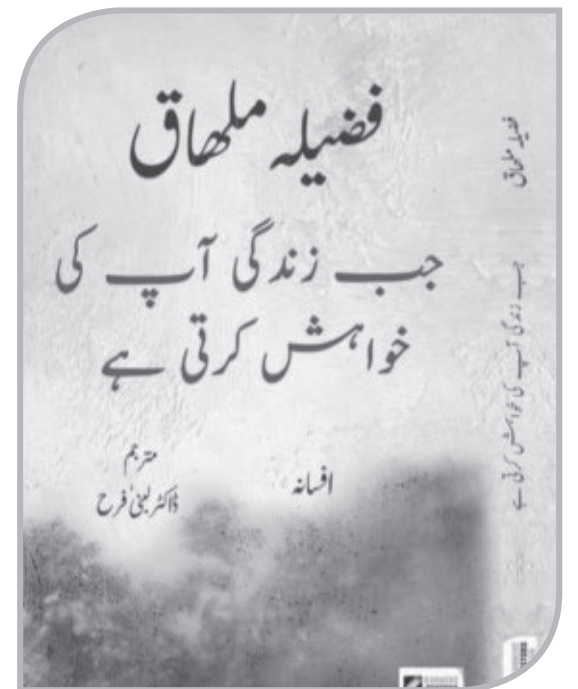 فضیلہ ملھاق
جب زندگی آپ کی
خواہش کرتی ہے
افسانہ
مترجم
ڈاکٹر لبنیٰ فرح
فضیلہ ملھاق
جب زندگی آپ کی خواہش کرتی ہے